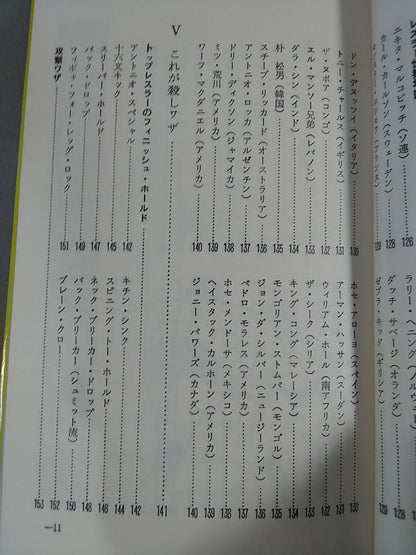 ニキタ・マルコビッチ（ソ連） 126
カール・カールソン（スウェーデン） 128
ダッチ・サベージ（オランダ） 128
129
ゼブラ・キッド（ギリシア） 129
ドン・デヌッツイ（イタリア） 130
ホセ・アローヨ（スペイン） 130
トニー・チャールス（イギリス） 131
アーマン・ハッサン（スーダン） 131
ザ・ヌボア（コンゴ） 132
ウィリアム・ホール（南アフリカ） 132
エル・マンソー兄弟（レバノン） 133
ザ・シーク（シリア） 133
ダラ・シン（インド） 134
キング・コング（マレーシア） 134
朴 松男（韓国） 135
モンゴリアン・ストムパー（モンゴル） 135
スチーブ・リッカード（オーストラリア） 136
ジョン・ダ・シルバー（ニュージーランド） 136
アントニオ・ロッカ（アルゼンチン） 137
ペドロ・モラレス（アメリカ） 137
ドリー・ディクソン（ジャマイカ） 138
ホセ・メンドーサ（メキシコ） 138
ミツ・荒川（アメリカ） 139
ヘイスタック・カルホーン（アメリカ） 139
ワーフ・マクダニエル（アメリカ） 140
ジョニー・パワーズ（カナダ） 140
V これが殺しワザ 141
トップレスラーのフィニッシュ・ホールド 142
アントニオ・スペシャル 142
キチン・シンク 144
十六文キック 145
スピニング・トー・ホールド 146
スリーパー・ホールド 147
ネック・ブリーカー・ドロップ 148
バック・ドロップ 149
バック・ブリーカー（シュミット流） 150
フィギャ・フォー・レッグ・ロック 151
ブレーン・クロー 152
攻撃ワザ 153
—11